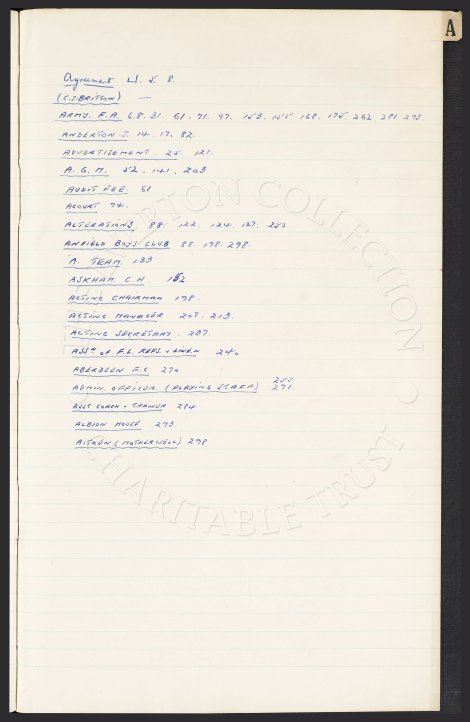 A
Agreement 4. 5. 8.
(C.S. BRITTON) —
ARMY. F.A. 6.8.31. 61. 71. 97. 153. 155. 168. 175. 262 281. 293.
ANDERTON J. 14. 17. 82.
ADVERTISEMENT. 25. 121.
A.G.M. 52. 141. 203
AUDIT FEE. 61
ACOURT 74.
ALTERATIONS 88. 122. 124. 127. 252
ANFIELD BOYS CLUB 88. 178. 298.
A. TEAM. 133
ASKHAM. C.H. 152
ACTING CHAIRMAN 198.
ACTING MANAGER 207. 213.
ACTING SECRETARY. 237.
ASSN OF F.L. REFS. & LINEN 240
ABERDEEN. F.C 270
255
ADMIN. OFFICER (PLAYING STAFF) 271
ASST COACH & TRAINER 284
ALBION HOUSE 293.
AITKEN (MOTHERWELL) 298
THE ALBION COLLECTION
CHARITABLE TRUST